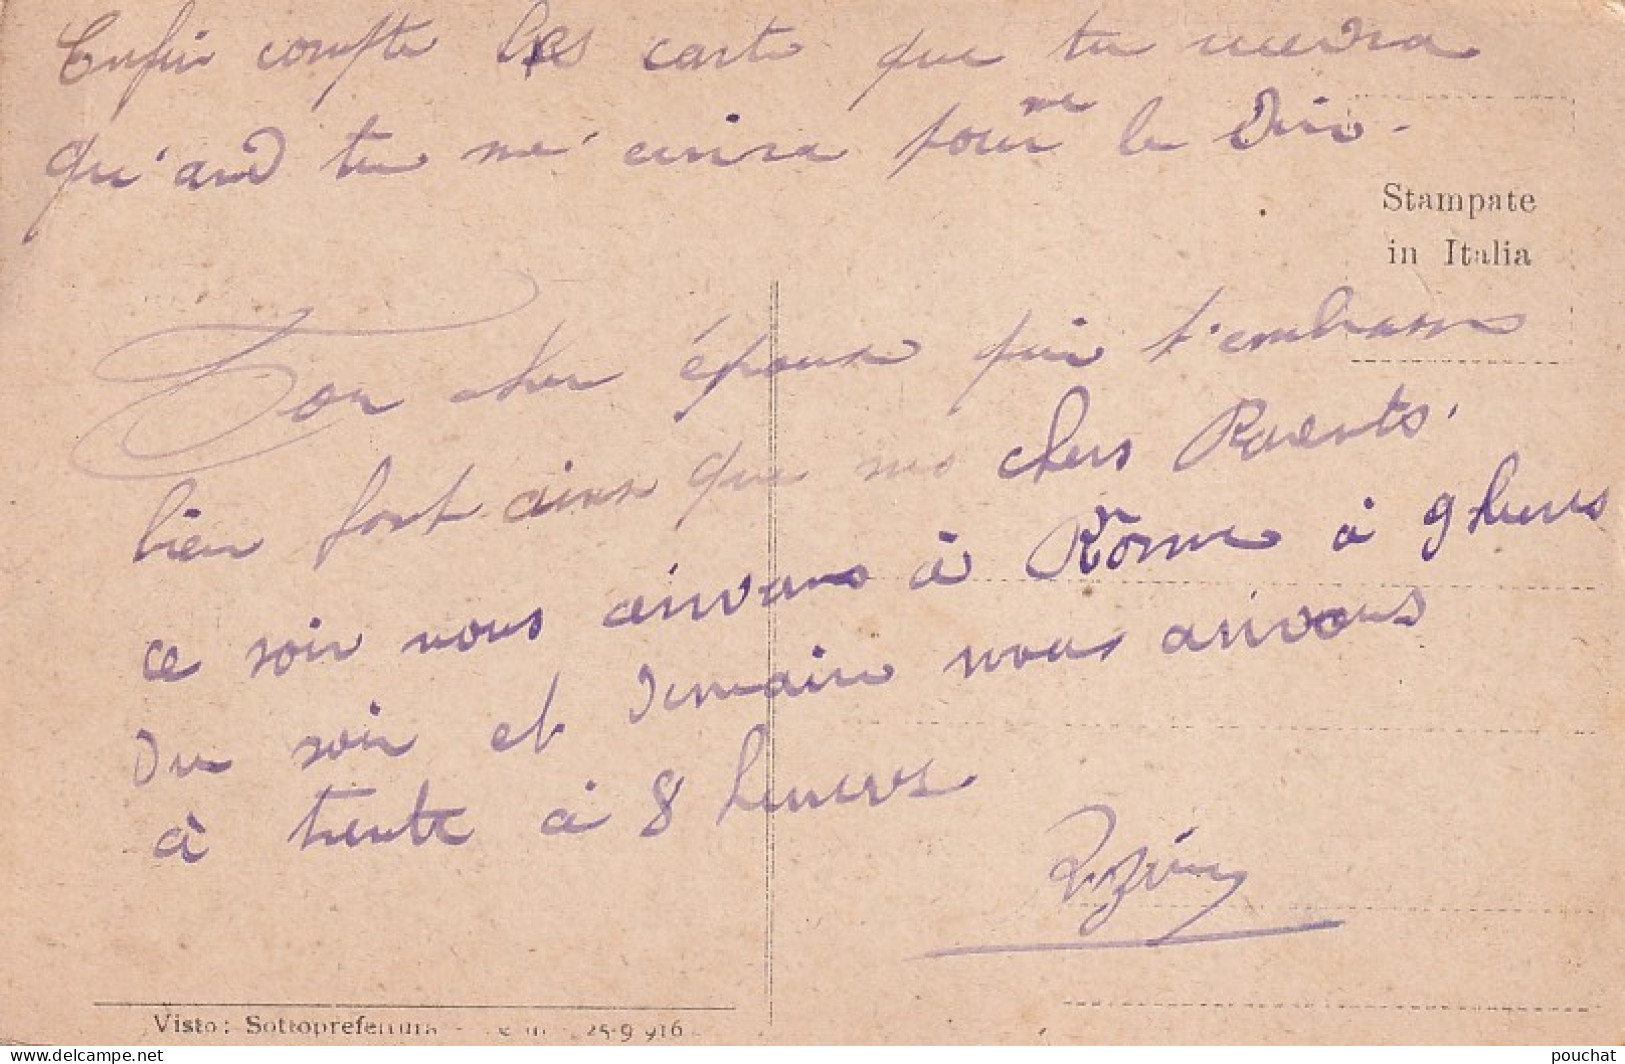 Enfin compte les carte que tu recevra
qu'and tu me' crira pour me le dire.
Stampate
in Italia
Ton cher époux qui t'embrasse
bien fort ainsi que mes chers Parents.
ce soir nous arivons à Rome à 9 heures
du soir et demain nous arivons
à trente à 8 heures
Visto: Sottoprefettura - 25-9-916
pouchat